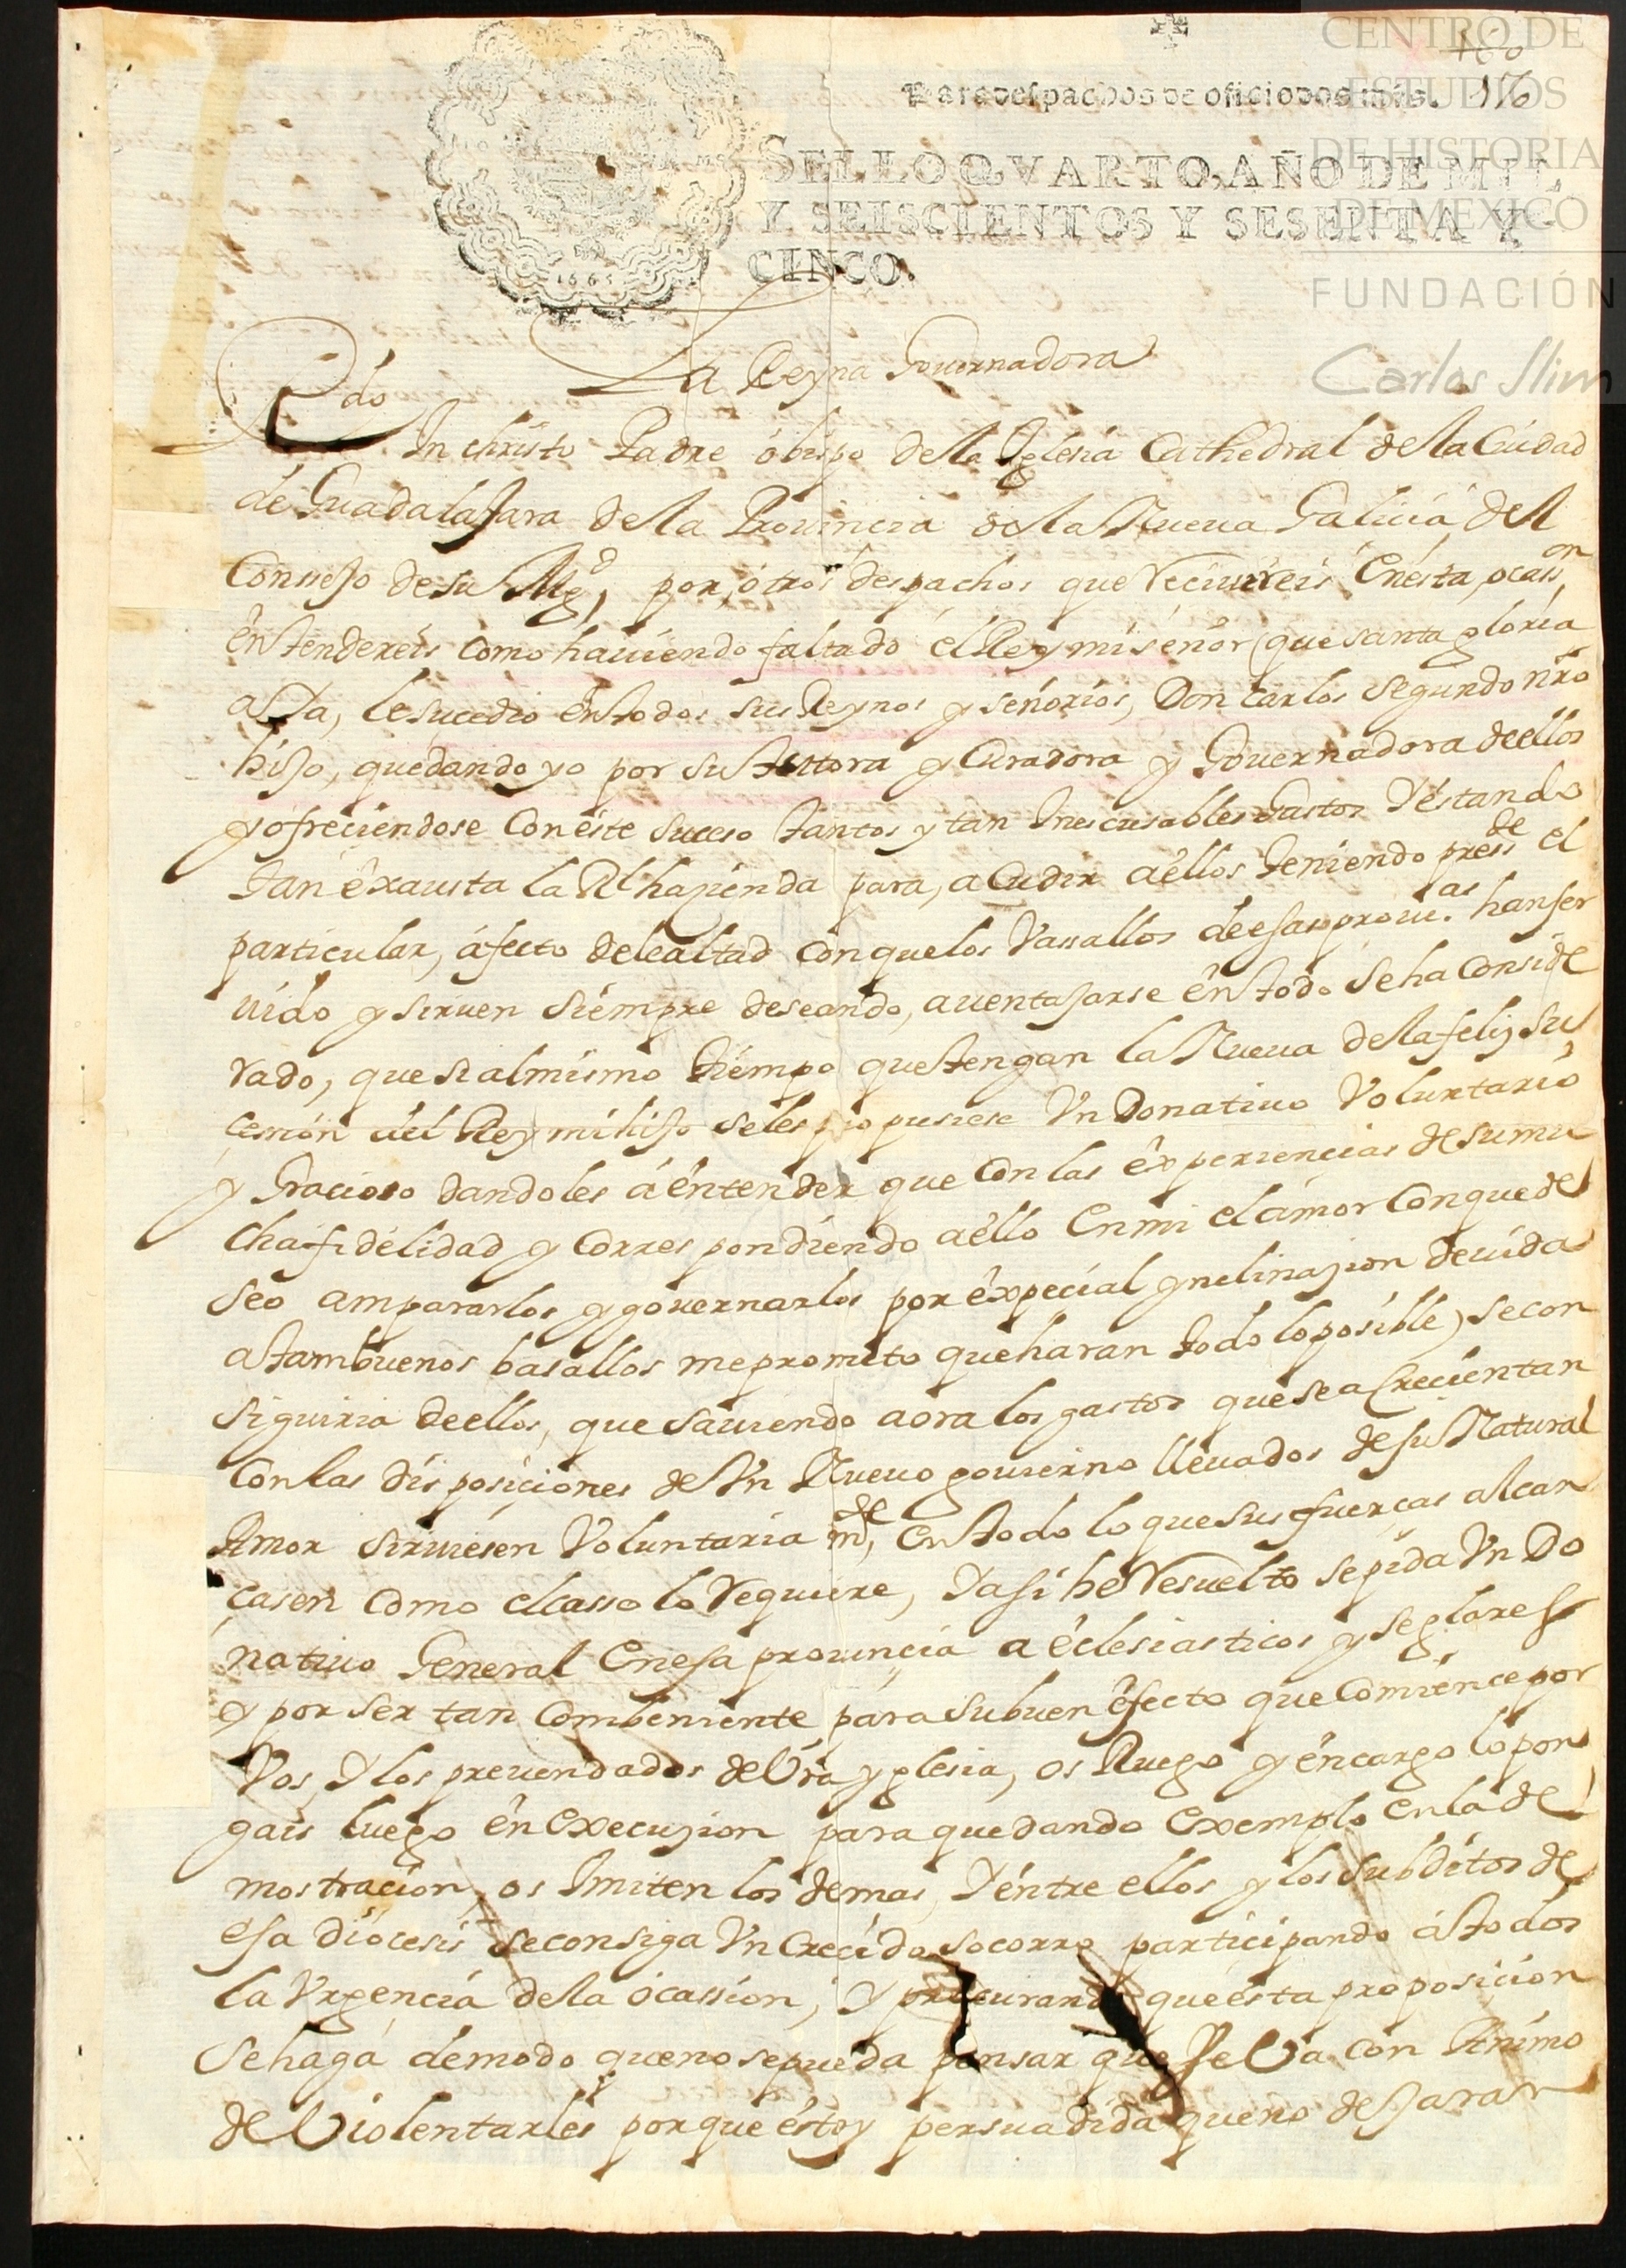 CENTRO DE
ESTUDIOS
DE HISTORIA
DE MEXICO
FUNDACIÓN
Carlos Slim
116
Para despachos de oficio dos mrs.
SELLO QVARTO, AÑO DE MIL
Y SEISCIENTOS Y SESENTA Y
CINCO.
1665
La Reyna Gouernadora
Rdo
In christo Padre óbispo de la Iglesia Cathedral de la Ciudad
de Guadalajara de la Prouincia de la Nueua Galicia del
Conssejo de su Mgd, por otros despachos que reciuireis en esta ocasson
entendereis como hauiendo faltado el Rey mi señor (que santa gloria
aya, le sucedio en todos sus Reynos y señorios, Don Carlos segundo nro
hijo, quedando yo por su tutora y Curadora y Gouernadora de ellos
y ofreciendose con este suceso tantos y tan Inescusables gastos y estando
tan exausta la Rl hazienda para, acudir a ellos teniendo presste el
particular, afecto de lealtad con que los Vassallos de esas prouas. han ser
uido y siruen siempre deseando, auentajarse en todo se ha conside
rado, que si al mismo tiempo que tengan la Nueua de la feliz su
cession del Rey mi hijo se les propusiese Vn Donatiuo Voluntario
y Gracioso dandoles a entender que con las experiencias de su mu
cha fidelidad y correspondiendo a ello en mi el amor con que de
seo ampararlos y gouernarlos por expecial ynclinazion deuida
a tam buenos basallos me prometo que haran todo lo posible) se con
siguiria de ellos, que sauiendo aora los gastos que se acrecientan
con las disposiciones de Vn Nueuo gouierno lleuados de su Natural
Amor siruiesen Voluntaria mte, en todo lo que sus fuerças alcan
casen como el casso lo requiere, Y asi he resuelto se pida Vn Do
natiuo General en esa prouincia a eclesiasticos y seglares
y por ser tan combeniente para su buen efecto que comience por
Vos, Y los preuendados de Vra yglesia, os Ruego y encargo lo pon
gais luego en execuzion para que dando exemplo en la de
mostracion, os Imiten los demas, Y entre ellos y los subditos de
esa diocesis se consiga Vn crecido socorro participando a todos
la Vrgencia de la ocassion, Y procurando que esta proposicion
se haga de modo que no se pueda pensar que se Va con Animo
de Violentarles porque estoy persuadida que no dejaran